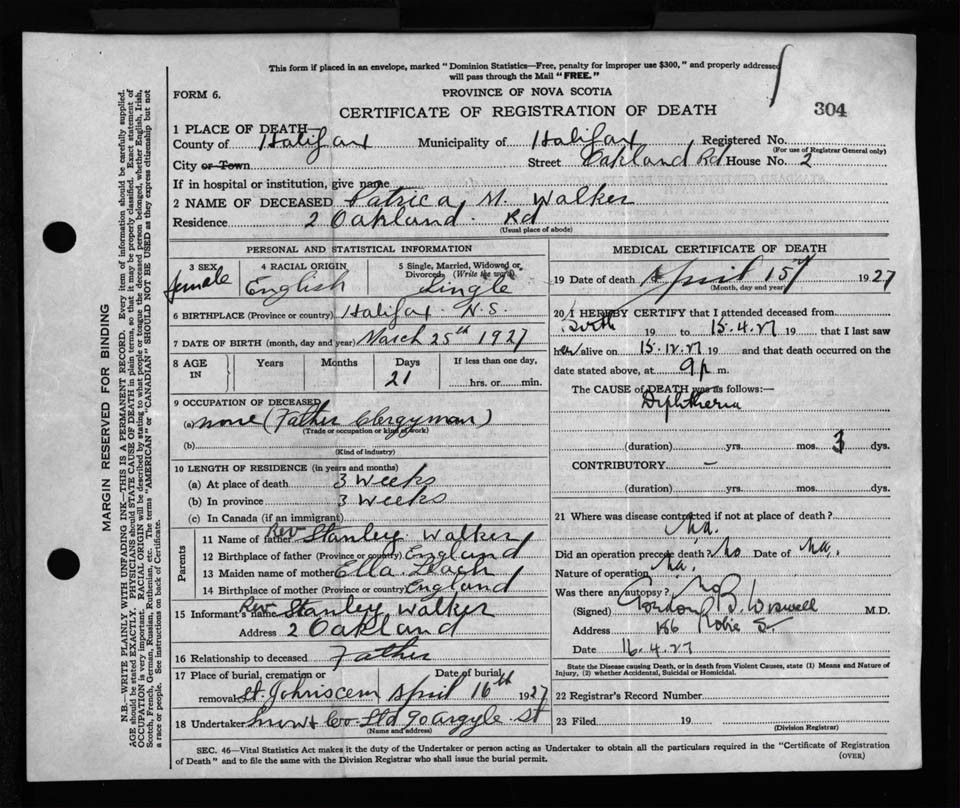 This form if placed in an envelope, marked "Dominion Statistics—Free, penalty for improper use $300," and properly addressed
will pass through the Mail "FREE."
FORM 6.
PROVINCE OF NOVA SCOTIA
CERTIFICATE OF REGISTRATION OF DEATH
304
1 PLACE OF DEATH—
County of Halifax Municipality of Halifax Registered No.
(For use of Registrar General only)
City or Town Street Oakland Rd House No. 2
If in hospital or institution, give name
2 NAME OF DECEASED Patrica M. Walker
Residence 2 Oakland Rd
(Usual place of abode)
PERSONAL AND STATISTICAL INFORMATION
3 SEX female
4 RACIAL ORIGIN English
5 Single, Married, Widowed or Divorced (Write the word) Single
6 BIRTHPLACE (Province or country) Halifax N.S.
7 DATE OF BIRTH (month, day and year) March 25th 1927
8 AGE IN Years Months Days 21 If less than one day, hrs. or min.
9 OCCUPATION OF DECEASED
(a) none (Father Clergyman)
(Trade or occupation or kind of work)
(b)
(Kind of industry)
10 LENGTH OF RESIDENCE (in years and months)
(a) At place of death 3 Weeks
(b) In province 3 Weeks
(c) In Canada (if an immigrant)
Parents
11 Name of father Rev Stanley Walker
12 Birthplace of father (Province or country) England
13 Maiden name of mother Ella Leach
14 Birthplace of mother (Province or country) England
15 Informant's name Rev. Stanley Walker
Address 2 Oakland
16 Relationship to deceased Father
17 Place of burial, cremation or removal St. Johns cem Date of burial April 16th 1927
18 Undertaker Snow & Co. Ltd 90 Argyle St
(Name and address)
MEDICAL CERTIFICATE OF DEATH
19 Date of death April 15 1927
(Month, day and year)
20 I HEREBY CERTIFY that I attended deceased from
birth 19 to 15.4.27 19 that I last saw
her alive on 15.12.27 19 and that death occurred on the
date stated above, at 9 p m.
The CAUSE of DEATH was as follows:—
Diphtheria
(duration) yrs. mos. 3 dys.
CONTRIBUTORY —
(duration) yrs. mos. dys.
21 Where was disease contracted if not at place of death?
Na.
Did an operation precede death? No Date of Na.
Nature of operation Na.
Was there an autopsy? No
(Signed) Gordon B. Wiswell M.D.
Address 186 Robie St.
Date 16.4.27
State the Disease causing Death, or in death from Violent Causes, state (1) Means and Nature of
Injury, (2) whether Accidental, Suicidal or Homicidal.
22 Registrar's Record Number
23 Filed 19
(Division Registrar)
SEC. 46—Vital Statistics Act makes it the duty of the Undertaker or person acting as Undertaker to obtain all the particulars required in the "Certificate of Registration
of Death" and to file the same with the Division Registrar who shall issue the burial permit.
(OVER)
MARGIN RESERVED FOR BINDING
N.B.—WRITE PLAINLY WITH UNFADING INK—THIS IS A PERMANENT RECORD. Every item of information should be carefully supplied.
AGE should be stated EXACTLY. PHYSICIANS should STATE CAUSE OF DEATH in plain terms, so that it may be properly classified. Exact statement of
OCCUPATION is very important. RACIAL ORIGIN will be described by stating to what people or tongue the deceased person belonged, whether English, Irish,
Scotch, French, German, Russian, Ruthenian, etc. The terms "AMERICAN" or "CANADIAN" SHOULD NOT BE USED as they express citizenship but not
a race or people. See instructions on back of Certificate.